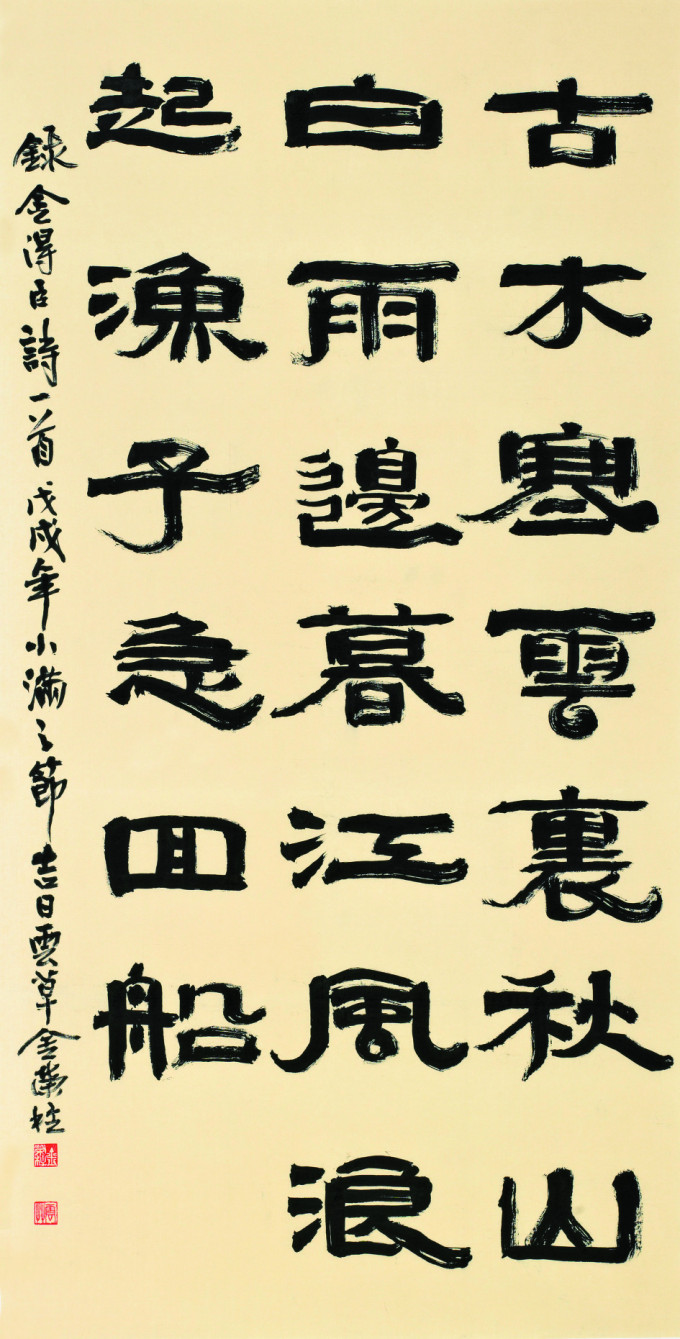 古木寒雲裏秋山
白雨邊暮江風浪
起漁子急回船
錄金得臣詩一首戊戌年小滿之節吉日雲草金